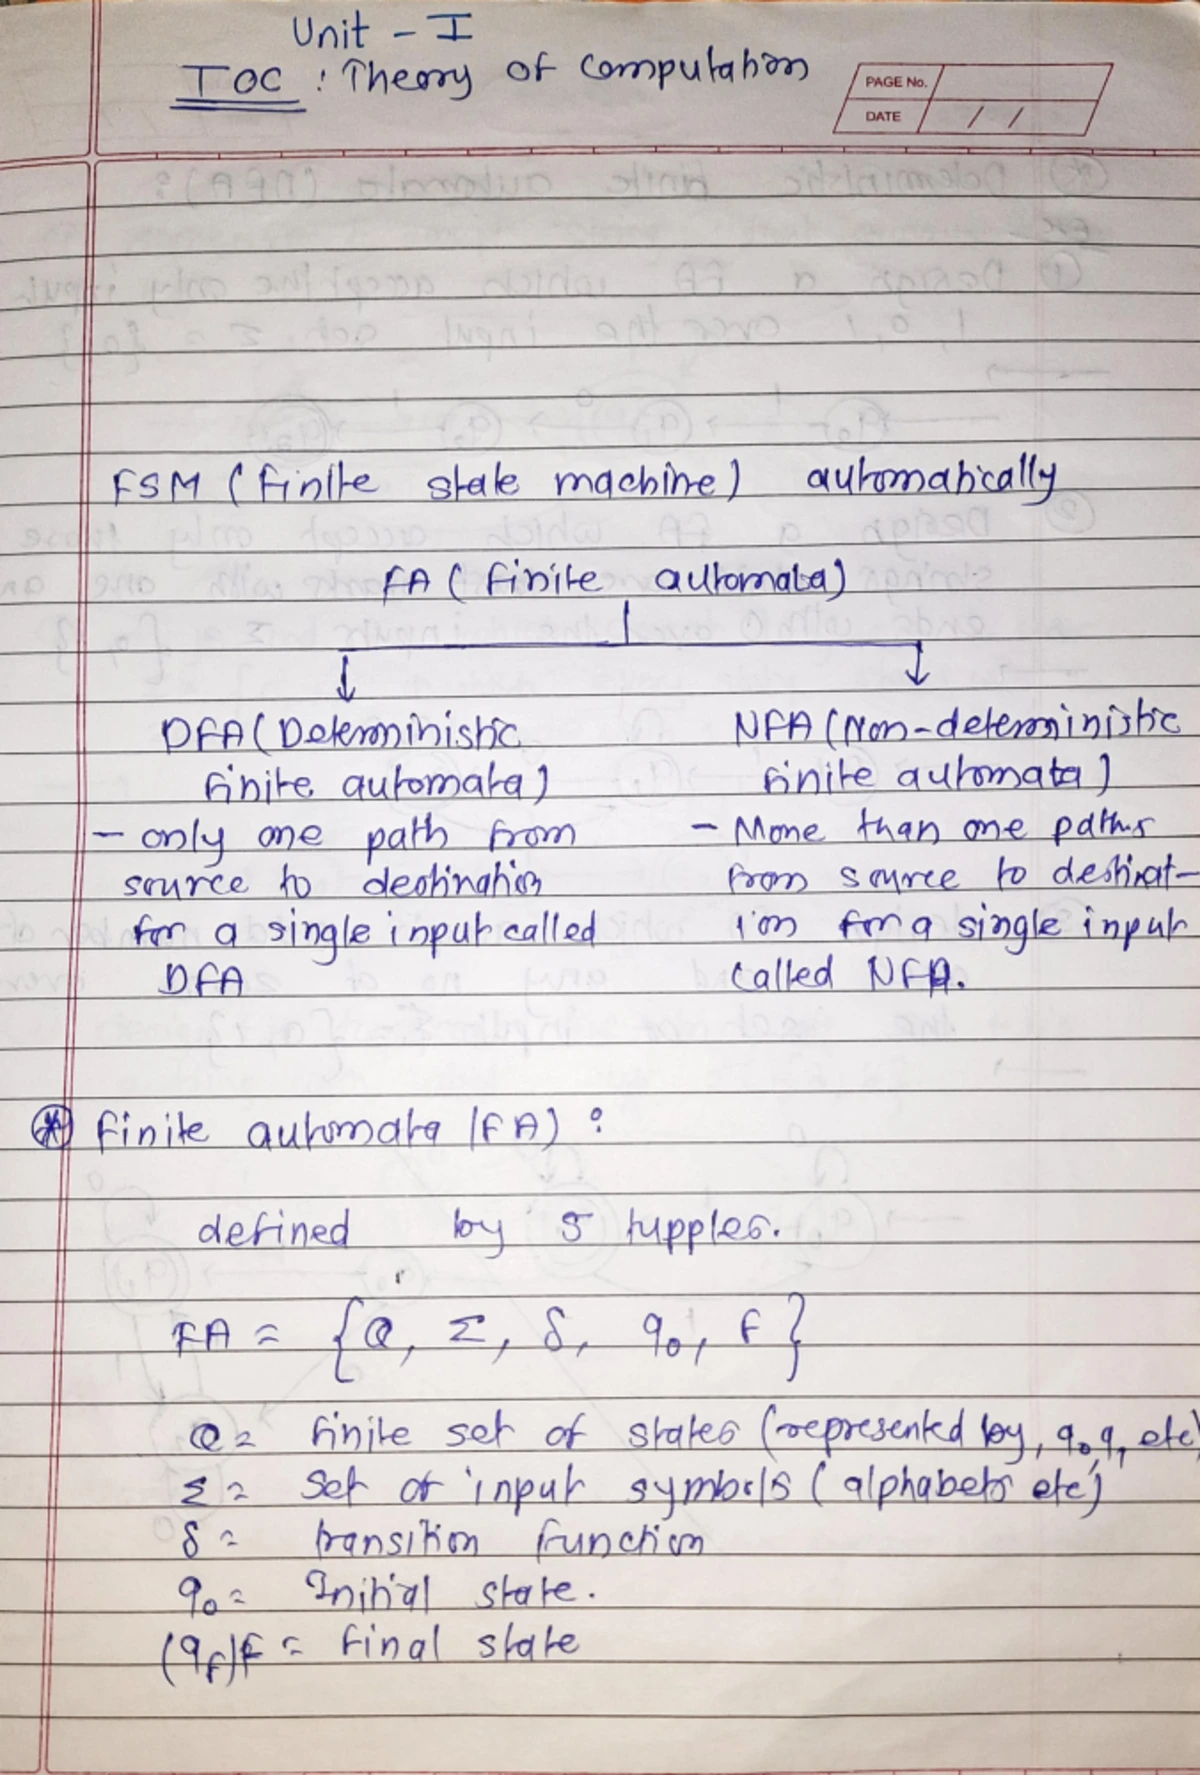 Unit - I
TOC : Theory of Computation
PAGE No.
DATE / /
FSM (finite state machine) automatically
FA (finite automata)
DFA (Deterministic
finite automata)
- only one path from
source to destination
for a single input called
DFA
NFA (Non-deterministic
finite automata)
- More than one paths
from source to destinat-
ion for a single input
called NFA.
* finite automata (FA) :
defined by 5 tupples.
FA = {Q, Σ, δ, q0, F}
Q = finite set of states (represented by, q0 q1 etc)
Σ = set of input symbols (alphabets etc)
δ = transition function
q0 = Initial state.
(qF) F = final state